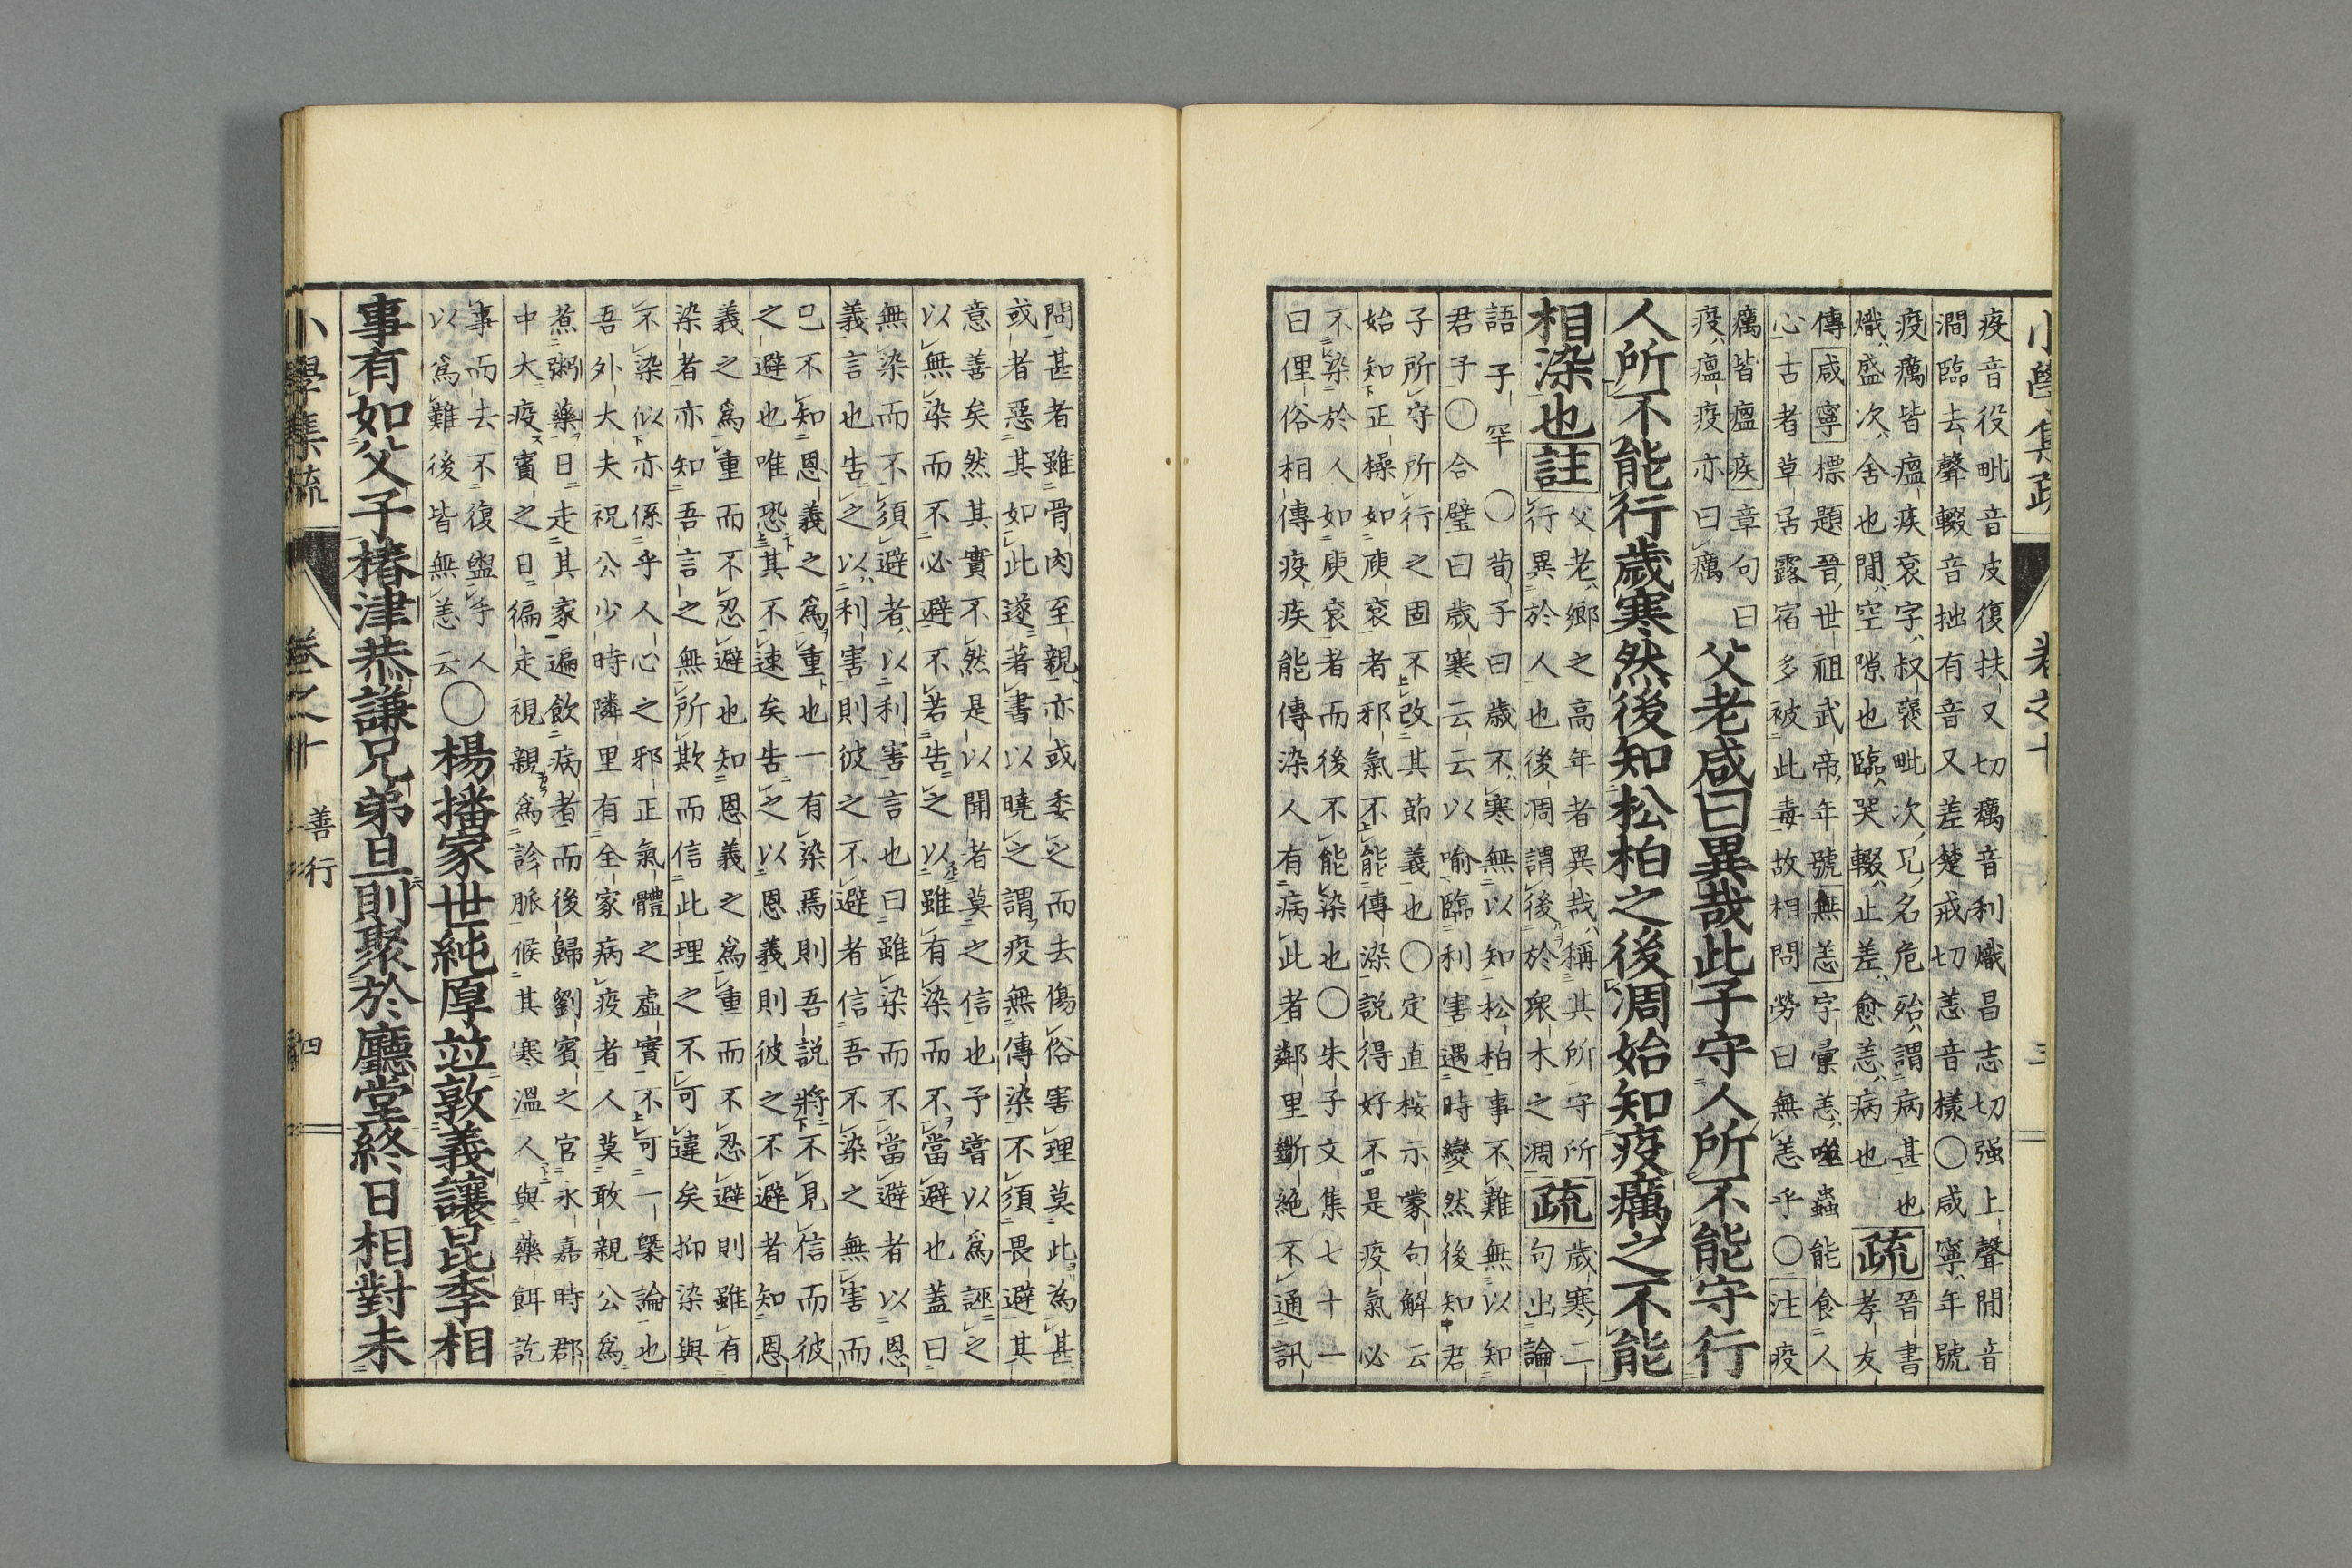 疫音役毗音皮復扶又切癘音利熾昌志切强上聲閒音
澗臨去聲輟音拙有音又差楚戒切恙音樣〇咸寧年號
疫癘皆瘟疾袞字叔褒毗次兄名危殆謂病甚也
熾盛次舍也閒空隙也臨哭輟止差愈恙病也疏晉書孝友
傳咸寧標題晉世祖武帝年號無恙字彙恙噬蟲能食人
心古者草居露宿多被此毒故相問勞曰無恙乎〇注疫
癘皆瘟疾章句曰
疫瘟疫亦曰癘
父老咸曰異哉此子守人所不能守行
人所不能行歲寒然後知松柏之後凋始知疫癘之不能
相染也註
父老鄉之高年者異哉稱其所守所
行異於人也後凋謂後於衆木之凋疏歲寒二
句出論
語子罕〇荀子曰歲不寒無以知松柏事不難無以知
君子〇合璧曰歲寒云云以喻臨利害遇時變然後知君
子所守所行之固不改其節義也〇定直桉示蒙句解云
始知正操如庾袞者邪氣不能傳染説得好不是疫氣必
不染於人如庾袞者而後不能染也〇朱子文集七十一
曰俚俗相傳疫疾能傳染人有病此者鄰里斷絶不通訊
問甚者雖骨肉至親亦或委之而去傷俗害理莫此為甚
或者惡其如此遂著書以曉之謂疫無傳染不須畏避其
意善矣然其實不然是以聞者莫之信也予嘗以爲誣之
以無染而不必避不若告之以雖有染而不當避也蓋曰
無染而不須避者以利害言也曰雖染而不當避者以恩
義言也告之以利害則彼之不避者信吾不染之無害而
已不知恩義之爲重也一有染焉則吾説將不見信而彼
之避也唯恐其不速矣告之以恩義則彼之不避者知恩
義之爲重而不忍避也知恩義之爲重而不忍避則雖有
染者亦知吾言之無所欺而信此理之不可違矣抑染與
不染似亦係乎人心之邪正氣體之虛實不可一槩論也
吾外大夫祝公少時隣里有全家病疫者人莫敢親公爲
煮粥藥日走其家遍飲病者而後歸劉賓之官永嘉時郡
中大疫賓之日徧走視親爲診脈候其寒溫人與藥餌訖
事而去不復盥手人
以爲難後皆無恙云〇
楊播家世純厚竝敦義讓昆季相
事有如父子椿津恭謙兄弟旦則聚於廳堂終日相對未
小學集疏 卷之十 善行 四